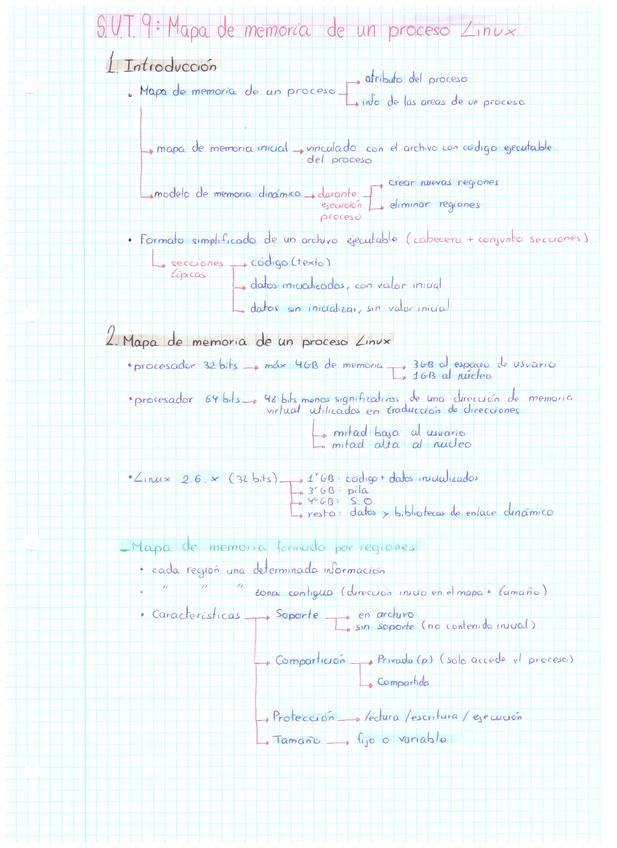 S.U.T. 9: Mapa de memoria de un proceso Linux
1. Introducción
• Mapa de memoria de un proceso → atributo del proceso
→ info de las areas de un proceso
→ mapa de memoria inicial → vinculado con el archivo con código ejecutable
del proceso
→ modelo de memoria dinámico → durante ejecución proceso → crear nuevas regiones
→ eliminar regiones
• Formato simplificado de un archivo ejecutable (cabecera + conjunto secciones)
→ secciones típicas → código (texto)
→ datos inicializados, con valor inicial
→ datos sin inicializar, sin valor inicial
2. Mapa de memoria de un proceso Linux
• procesador 32 bits → máx 4GB de memoria → 3GB al espacio de usuario
→ 1GB al núcleo
• procesador 64 bits → 48 bits menos significativos de una dirección de memoria
virtual utilizados en traducción de direcciones
→ mitad baja al usuario
→ mitad alta al nucleo
• Linux 2.6.x (32 bits) → 1º GB: código + datos inicializados
→ 3º GB: pila
→ 4º GB: S.O
→ resto: datos y bibliotecas de enlace dinámico
- Mapa de memoria formado por regiones
• cada región una determinada información
• " " " zona contigua (dirección inicio en el mapa + tamaño)
• Características → Soporte → en archivo
→ sin soporte (no contenido inicial)
→ Compartición → Privada (p) (solo accede el proceso)
→ Compartida
→ Protección → lectura / escritura / ejecución
→ Tamaño → fijo o variable